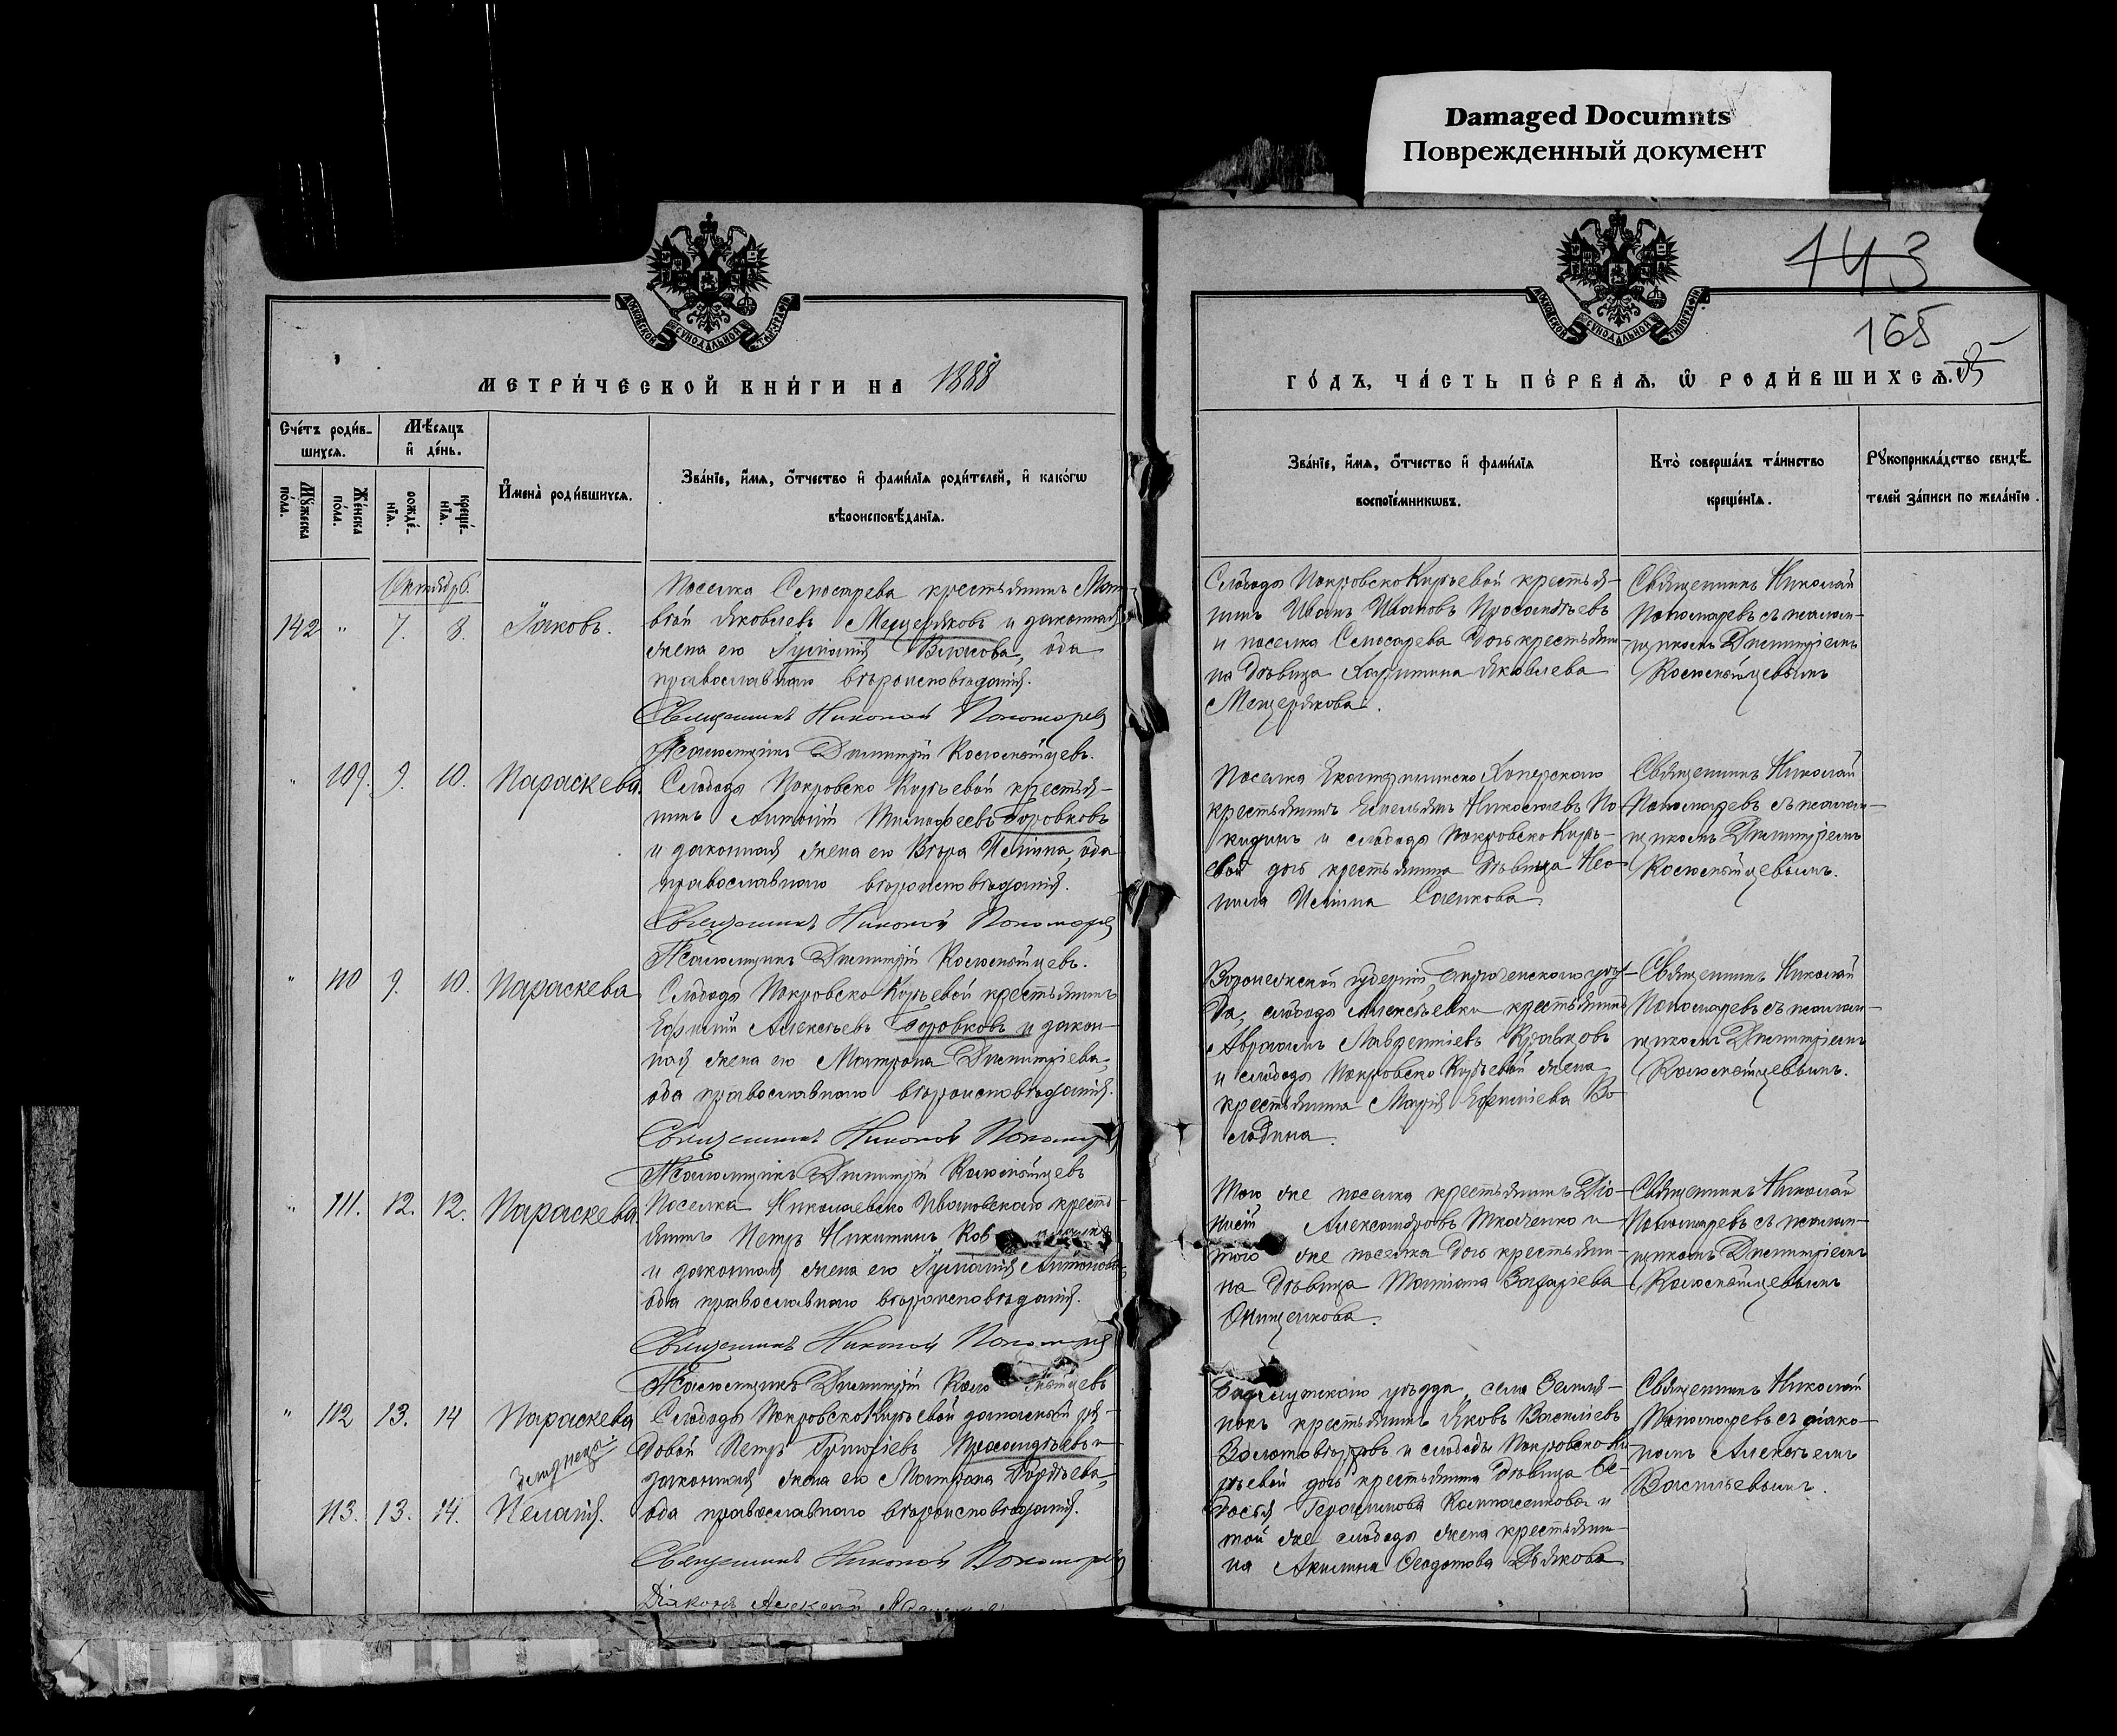 Damaged Documnts
Поврежденный документ
143
165
МОСКОВСКОЙ СѴНОДАЛЬНОЙ ТИПОГРАФІИ
МОСКОВСКОЙ СѴНОДАЛЬНОЙ ТИПОГРАФІИ
МЕТРИ́ЧЕСКОЙ КНИ́ГИ НА 1888
ГО́ДЪ, ЧА́СТЬ ПЕ́РВАѦ, Ѡ҆ РОДИ́ВШИХСѦ.
Сче́тъ роди́в-
шихсѧ.
Мꙋ́жеска по́ла.
Же́нска по́ла.
Мѣ́сѧцъ
и҆ де́нь.
рожде́-
нїѧ.
креще́-
нїѧ.
И҆мена̀ роди́вшихсѧ.
Зва́нїе, и҆́мѧ, ѻ҆́тчество и҆ фами́лїѧ роди́телей, и҆ како́гѡ
вѣроисповѣ́данїѧ.
Зва́нїе, и҆́мѧ, ѻ҆́тчество и҆ фами́лїѧ
воспрїе́мникѡвъ.
Кто̀ соверша́лъ та́инство
креще́нїѧ.
Рꙋкоприкла́дство свидѣ́-
телей за́писи по жела́нїю.
Октябрь
142 " 7. 8. Іаковъ.
Поселка Слюсарева крестьянинъ Мат
вѣй Яковлевъ Мещеряковъ и законная
жена его Іуліанія Власова, оба
православнаго вѣроисповѣданія.
Священникъ Николай Пономарев
Псаломщикъ Димитрій
Слободы Покровско Кирѣевой крестья-
нинъ Иванъ Ивановъ
и поселка Слюсарева дочь крестьяни-
на дѣвица Харитина Яковлева
Мещерякова.
Священникъ Николай
Пономаревъ съ псалом-
щикомъ Димитріемъ
" 109. 9. 10. Параскева.
Слободы Покровско Кирѣевой крестья-
нинъ Антоній Тимофеевъ Боровковъ
и законная жена его Вѣра Ильина, оба
православнаго вѣроисповѣданія.
Священникъ Николай Пономарев
Псаломщикъ Димитрій
Поселка Екатериниско Хоперскаго
крестьянинъ Емельянъ Николаевъ По-
и слободы Покровско Кирѣ-
евой дочь крестьянина дѣвица Нео-
нила Ильина
Священникъ Николай
Пономаревъ съ псалом-
щикомъ Димитріемъ
" 110 9. 10. Параскева
Слободы Покровско Кирѣевой крестьянинъ
Ефимій Алексѣевъ Боровковъ и закон-
ная жена его Матрона Димитріева,
оба православнаго вѣроисповѣданія.
Священникъ Николай Пономарев
Псаломщикъ Димитрій
Воронежской губерніи, Бирюченскаго уѣз-
да, слободы Алексѣевки крестьянинъ
Авраамъ Лаврентіевъ Кравцовъ
и слободы Покровско Кирѣевой жена
крестьянина Марія Ефиміева Во-
лодина.
Священникъ Николай
Пономаревъ съ псалом-
щикомъ Димитріемъ
" 111. 12. 12. Параскева.
Поселка Николаевско Ивановскаго кресть-
янинъ Петръ Никитинъ Ков
и законная жена его Іуліанія Антонова,
оба православнаго вѣроисповѣданія.
Священникъ Николай Пономарев
Псаломщикъ Димитрій
Того же поселка крестьянинъ Діо-
нисій Александровъ Ткаченко и
того же поселка дочь крестьяни-
на дѣвица Татіана Захаріева
Онищенкова.
Священникъ Николай
Пономаревъ съ псалом-
щикомъ Димитріемъ
" 112 13. 14 Параскева
близнецы
113. 13. 14. Пелагія.
Слободы Покровско Кирѣевой запасный ря-
довой Петръ Григоріевъ и
законная жена его Матрона Гордѣева,
оба православнаго вѣроисповѣданія.
Священникъ Николай Пономарев
Діаконъ Алексѣй
Бахмутскаго уѣзда, села Земля-
нокъ крестьянинъ Яковъ Васильевъ
и слободы Покровско Ки-
рѣевой дочь крестьянина дѣвица Ѳе-
досья Герасимова и
той же слободы жена крестьяни-
на Акилина Ѳеодотова Дьякова
Священникъ Николай
Пономаревъ съ діако-
номъ Алексѣемъ
Васильевымъ.